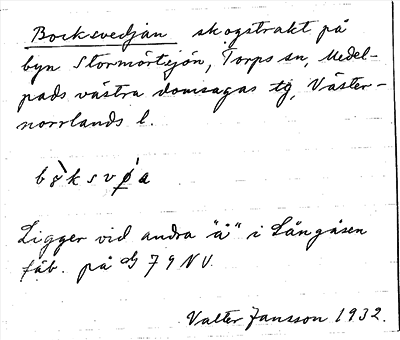 Bocksvedjan skogstrakt på
byn Stormörtsjön, Torps sn, Medel-
pads västra domsagas tg, Väster-
norrlands l.
Ligger vid andra "å" i Långåsen
fäb. på G 79 NV.
Valter Jansson 1932.